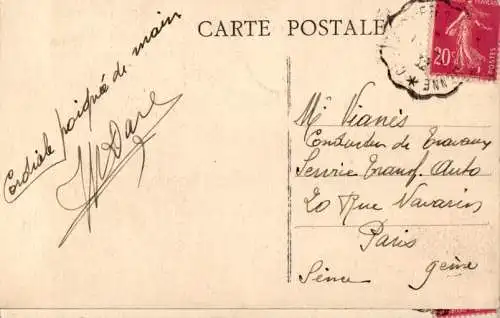 CARTE POSTALE
20c
POSTES
Cordiale poignée de main
Mr Vianès
Conducteur de Travaux
Service Transf. Auto
20 Rue Navarin
Paris
Seine 9eme